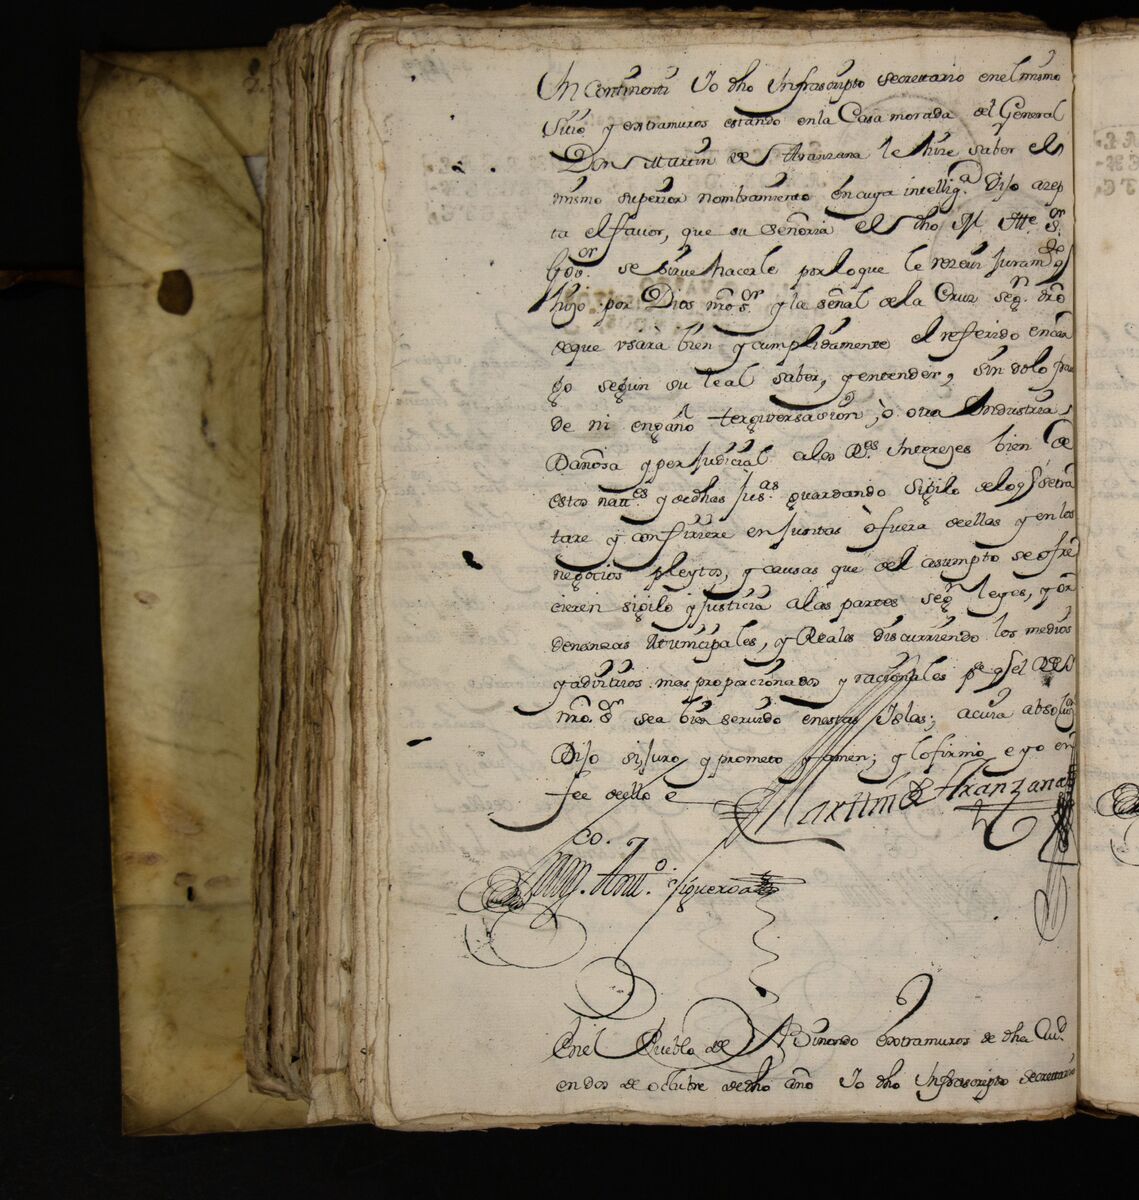 In continenti Yo dho Infrascripto secrettario enel mismo
Sitio y extramuros estando enla Casa morada del General
Don Martin de Aranzana le hize saber el
mismo superior nombramiento en cuya intellig.ª Dijo azep
ta el favor, que su señoria el dho M. Ytte s.or
Gov.or se sirve hacerle por lo que le rezevi Juram.to q
hizo por Dios nro s.or y la señal dela Cruz seg.n dro
deque usara bien y cumplidamente el referido encar
go segun su leal saber, y entender, sin dolo frau
de ni engaño terquiversasion, ò otra Industria
Dañosa y perJudicial alos R.es Interezes bien de
estos natt.es y dedhas Jus.as guardando Sigilo delo q setra
tare y confiriere en Juntas ò fuera deellas y en los
negocios pleytos, y causas que del asumpto se ofre
cieren sigilo y Justicia alas partes seg.n leyes, y or
denanzas Munizipales, y Reales discurriendo los medios
y advitrios mas proporcionados y racionales p.a q el Rey
nro s.or sea bien servido enestas Yslas; acuia absoluz.on
Dijo si, juro y prometo y amen; y lo firmo, e yo en
fee deello e
Martin de Aranzana
co.
Ant.o Figueroa
Enel Pueblo de Binondo extramuros de dha Ciu.d
en dos de octubre dedho año Yo dho Infrascripto secrettario